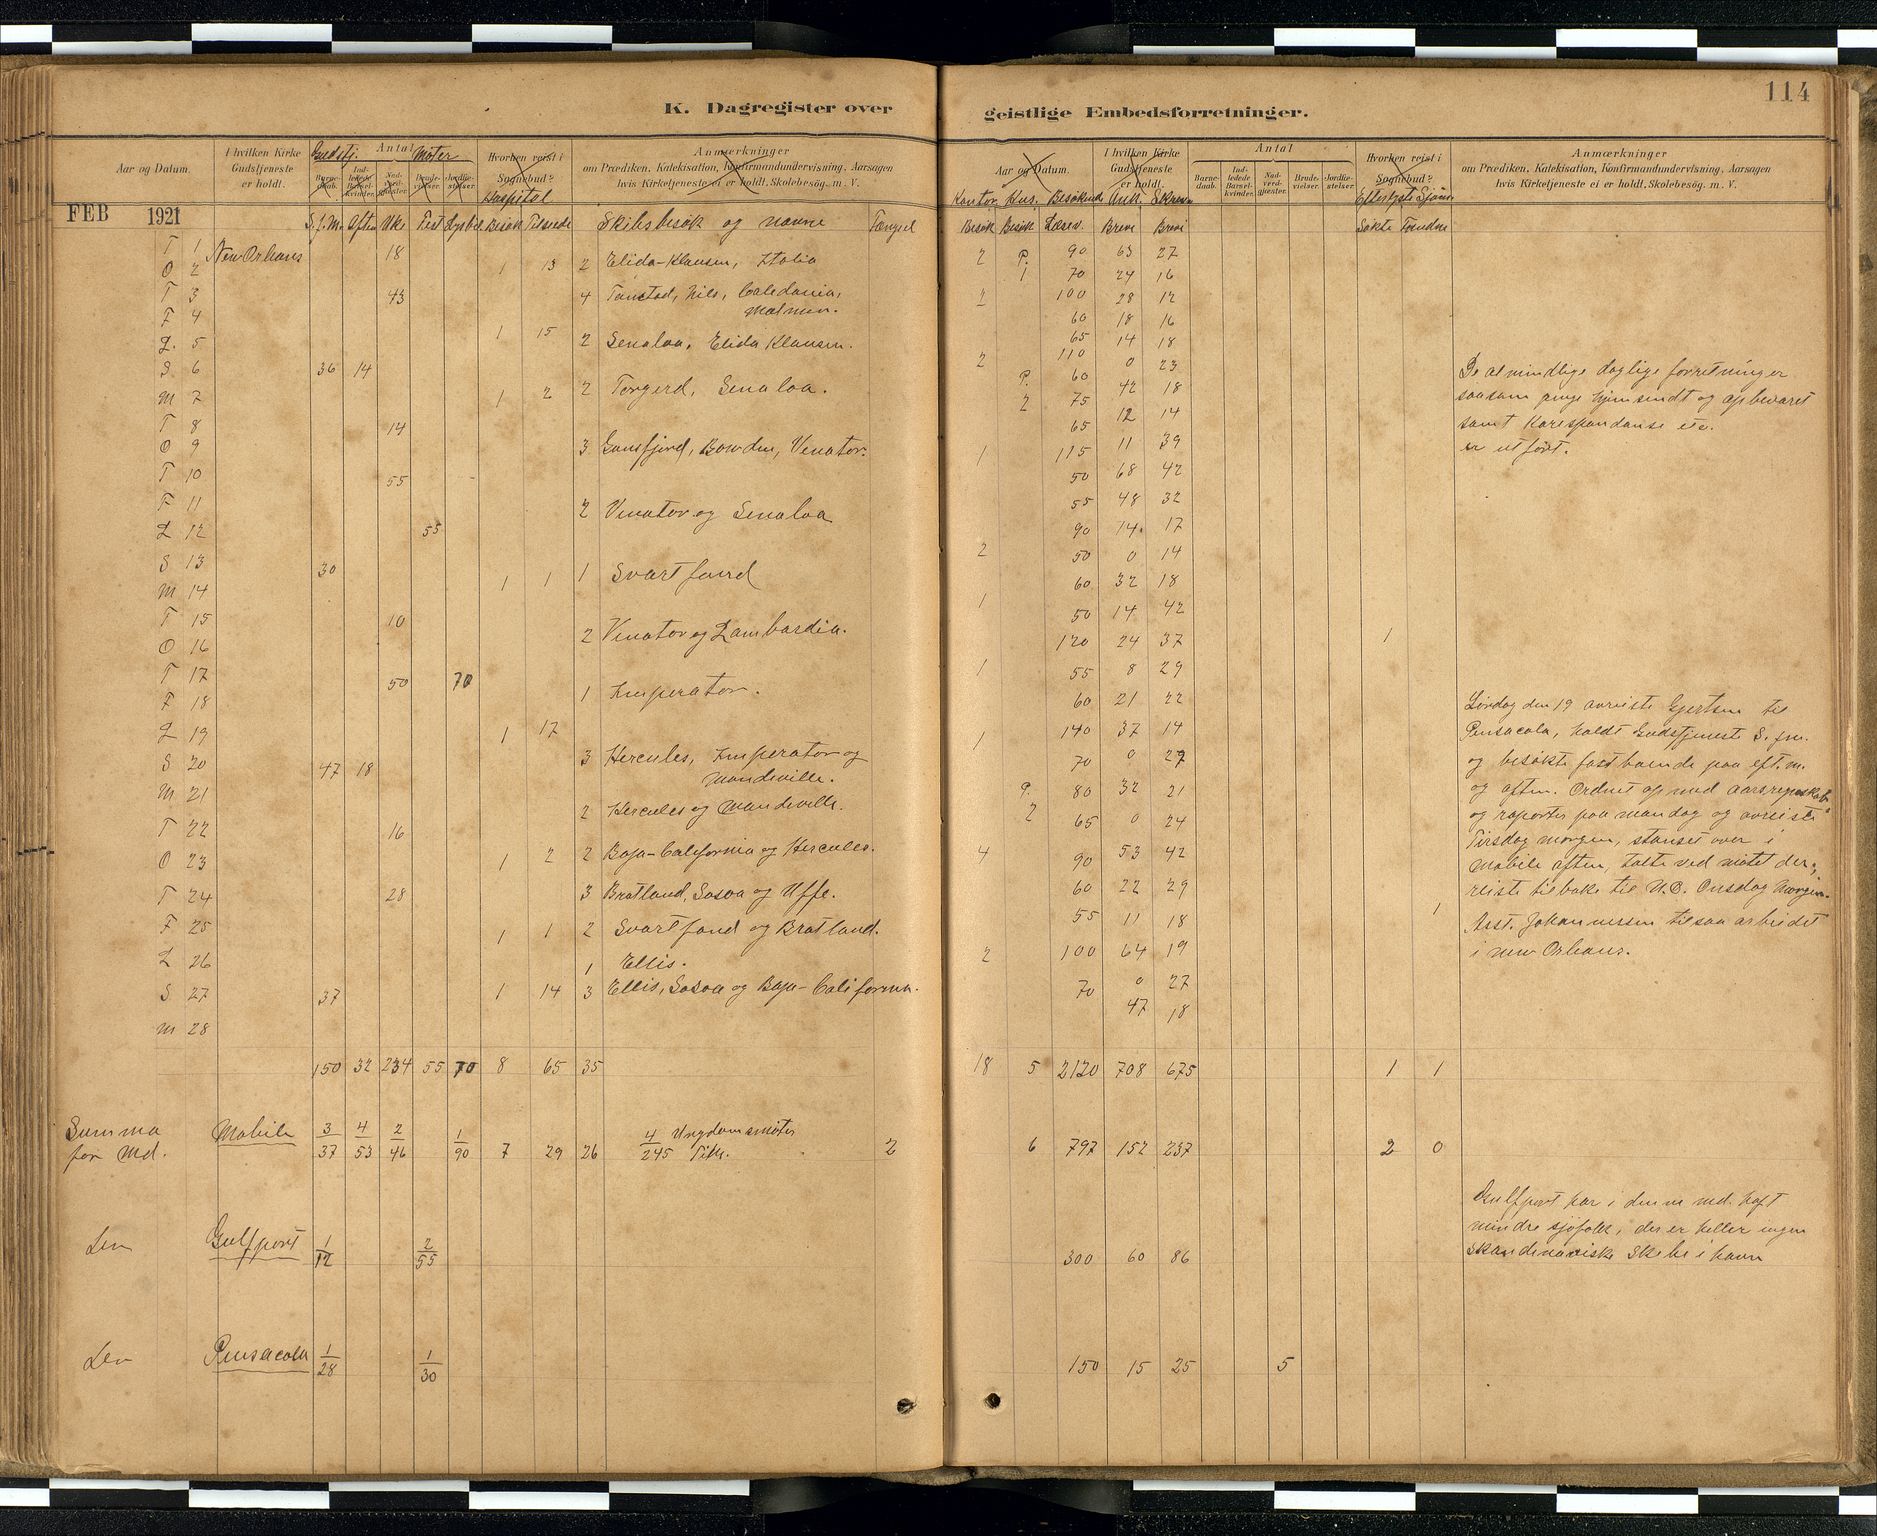 K. Dagregister over
geistlige Embedsforretninger.
114
Aar og Datum.
I hvilken Kirke Gudstjeneste er holdt.
Gudstj. Antal Møter
Barnedaab. Indledede Barselkvinder. Nadverdgjæster. Brudevielser. Jordfæstelser.
Hvorhen reist i Sognebud?
Hospital
Anmærkninger
om Prædiken, Katekisation, Konfirmandundervisning, Aarsagen
hvis Kirketjeneste ei er holdt, Skolebesög. m. V.
Aar og Datum.
I hvilken Kirke Gudstjeneste er holdt.
Antal
Barnedaab. Indledede Barselkvinder. Nadverdgjæster. Brudevielser. Jordfæstelser.
Hvorhen reist i Sognebud?
Anmærkninger
om Prædiken, Katekisation, Konfirmandundervisning, Aarsagen
hvis Kirketjeneste ei er holdt, Skolebesög. m. V.
Kontor Hus. Besøkende Ank. Skrevne
FEB 1921
S.f.M. Aften Uke Fest Lysbil. Besøk Tilstede Skibsbesøk og navne Fængsel
Besøk Besøk Læsev. Breve Breve
Søkte Fundne
T 1 New Orleans 18
O 2 1 13 2 Elida-Klausen, Italia
T 3 43 4 Tanstad, Nils, Caledonia,
F 4 Malmen.
L. 5 1 15 2 Senaloa, Elida Klausen.
S 6 36 14
M 7 1 2 2 Torgerd, Senaloa.
T 8 14
O 9 3 Gansfjord, Bowden, Venator.
T 10 55
F 11 2 Venator og Senaloa
L 12 55
S 13 30
M 14 1 1 1 Svartfond
T 15 10
O 16 2 Venator og Lambardia.
T 17 50 70
F 18 1 Imperator.
L 19 1 17
S 20 47 18 3 Hercules, Imperator og
Mandeville.
M 21 2 Hercules og Mandeville.
T 22 16
O 23 1 2 2 Baja-California og Hercules.
T 24 28 3 Bratland, Sosva og Uffe.
F 25 1 1 2 Svartfond og Bratland.
L 26 1 Ellis.
S 27 37 1 14 3 Ellis, Sosva og Baja-California.
M 28
150 32 234 55 70 8 65 35
Summa for Md. Mobile 3/37 4/53 2/46 1/90 7 29 26 4/245 Ungdomsmøter Tilh. 2
Gulfport 1/12 2/55
Pensacola 1/28 1/30
2 P. 90 63 27
1 70 24 16
2 100 28 12
60 18 16
65 14 18
2 110 0 23
P. 60 42 18
2 75 12 14
65 11 39
1 115 68 42
50 48 32
55 14. 17
90 0 14
2 50 32 18
60 14 42
1 50 24 37
120 8 29 1
1 55 21 22
60 37 14
1 140 0 27
70 32 21
P. 80 0 24
2 65 53 42
4 90 22 29
60 11 18 1
55 64 19
2 100 0 27
70 47 18
18 5 2120 708 675 1 1
6 797 152 237 2 0
300 60 86
150 15 25 5
De almindlige daglige forretninger
saasom penge hjemsendt og opbevaret
samt Korespondanse etc.
er utført.
Lørdag den 19 avreiste Gjertsen til
Pensacola, holdt Gudstjeneste S. fm.
og besøkte fastboende paa eft. m.
og aften. Ordnet op med aarsregnskab
og raporter paa mandag og avreiste
Tirsdag morgen, stanset over i
Mobile aften, talte ved møtet der,
reiste tilbake til N.O. Onsdag Morgen.
Asst. Johannessen tilsaa arbeidet
i New Orleans.
Gulfport har i denne md. haft
mindre sjøfolk, der er heller ingen
skandinaviske Skibe i havn